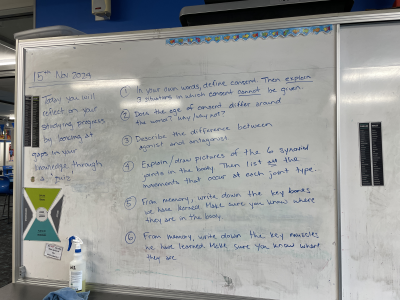 15th Nov 2024
Today you will
reflect on your
studying progress
by looking at
gaps in your
knowledge through
a quiz
① In your own words, define consent. Then explain
3 situations in which consent cannot be given.
② Does the age of consent differ around
the world? why/why not?
③ Describe the difference between
agonist and antagonist
④ Explain/draw pictures of the 6 synovial
joints in the body. Then list all the
movements that occur at each joint type.
⑤ From memory, write down the key bones
we have learned. Make sure you know where
they are in the body.
⑥ From memory, write down the key muscles
we have learned. Make sure you know where
they are